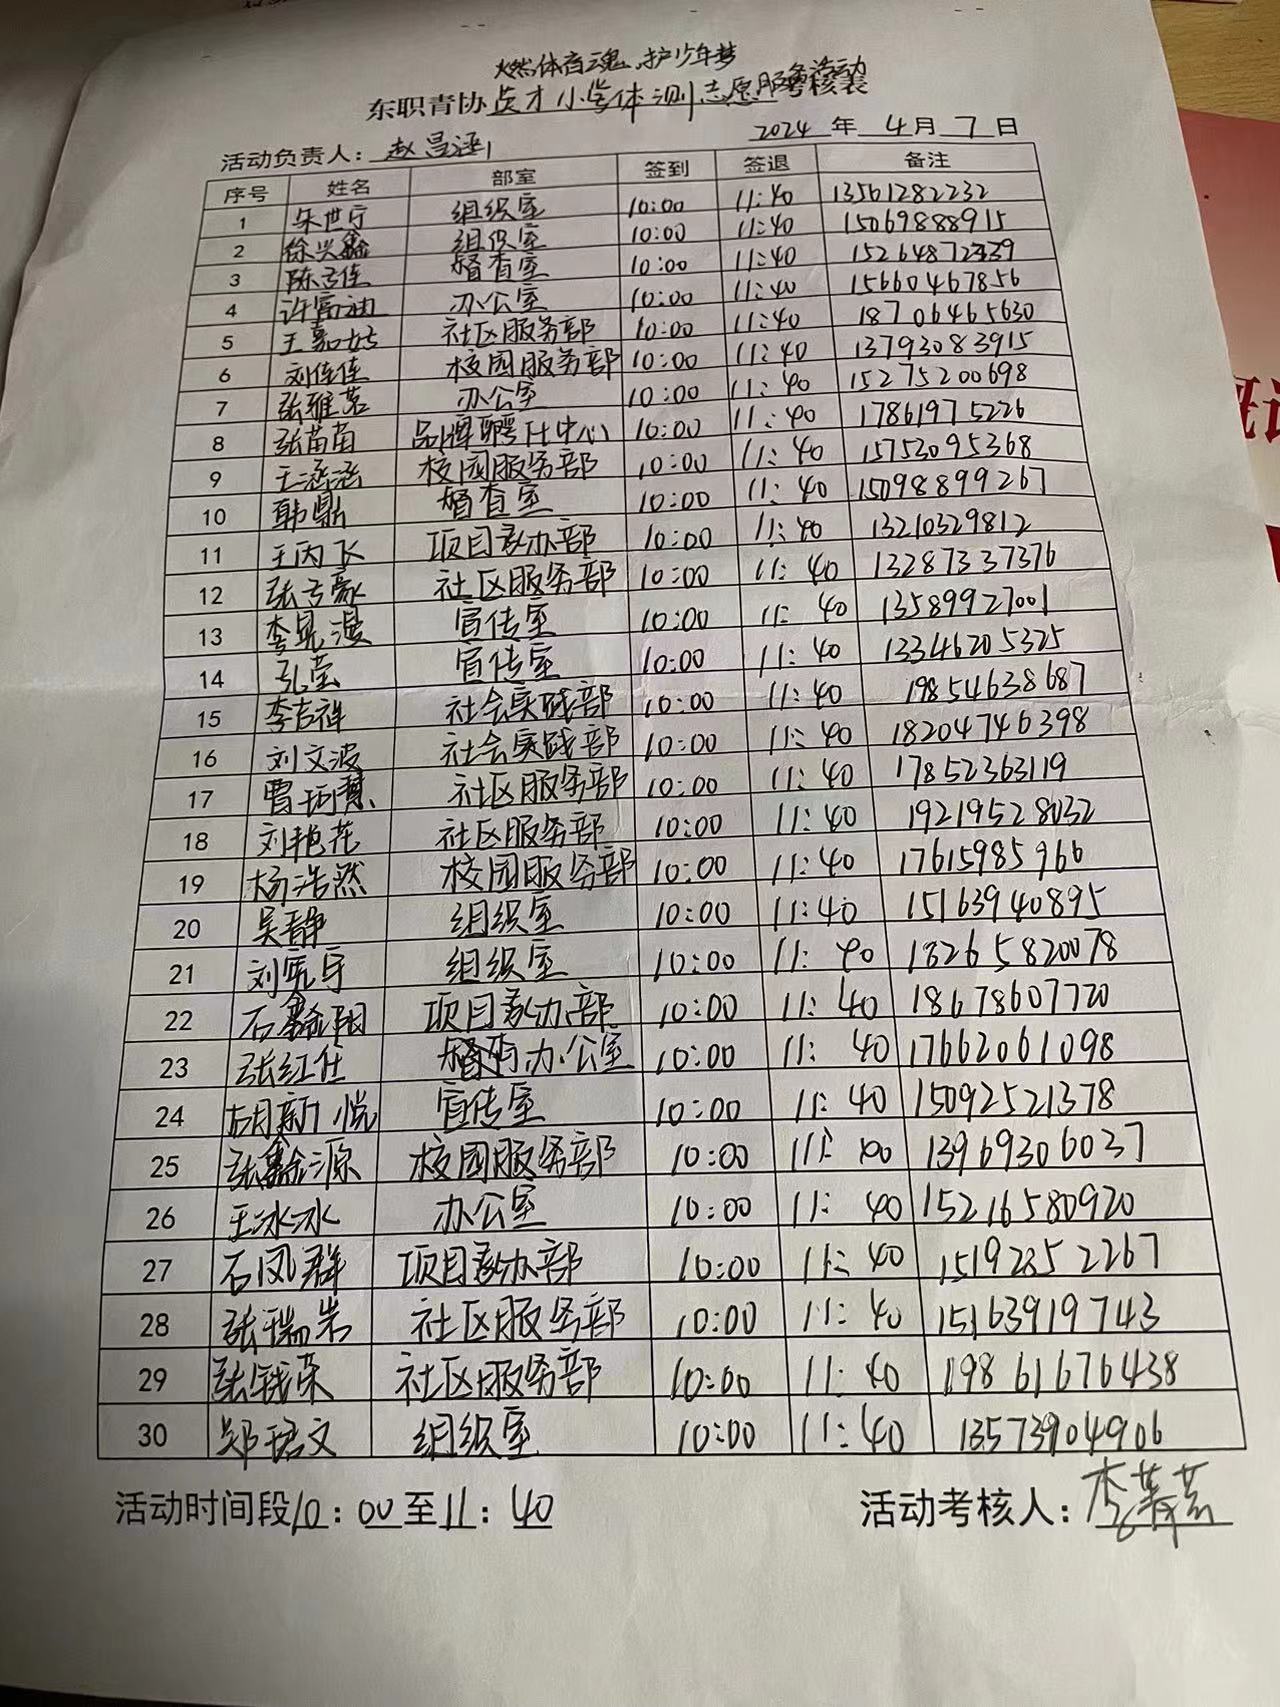 燃体育魂,护少年梦
东职青协英才小学体测志愿服务活动考核表
2024 年 4 月 7 日
活动负责人：赵昌涵
序号 姓名 部室 签到 签退 备注
1 朱世宁 组织室 10:00 11:40 13561282232
2 徐兴鑫 组织室 10:00 11:40 15069888915
3 督查室 10:00 11:40
4 办公室 10:00 11:40 15660467856
5 王嘉 社区服务部 10:00 11:40 18706465630
6 刘佳佳 校园服务部 10:00 11:40 13793083915
7 张雅茗 办公室 10:00 11:40 15275200698
8 张苗苗 品牌 中心 10:00 11:40 17861975226
9 王涵涵 校园服务部 10:00 11:40 15753095368
10 韩鼎 督查室 10:00 11:40 15098899267
11 王丙飞 项目承办部 10:00 11:40 13210329812
12 张 豪 社区服务部 10:00 11:40 13287337376
13 李 漫 宣传室 10:00 11:40 13589927001
14 孔莹 宣传室 10:00 11:40 13346205325
15 李吉祥 社会实践部 10:00 11:40 19854638687
16 刘文波 社会实践部 10:00 11:40 18204746398
17 曹 社区服务部 10:00 11:40 17852363119
18 刘艳花 社区服务部 10:00 11:40 19219528032
19 杨浩然 校园服务部 10:00 11:40 17615985966
20 吴静 组织室 10:00 11:40 15163940895
21 刘宪宇 组织室 10:00 11:40 18265820078
22 石鑫翔 项目承办部 10:00 11:40 18678607720
23 张红仕 办公室 10:00 11:40 17662061098
24 胡新悦 宣传室 10:00 11:40 15092521378
25 张鑫源 校园服务部 10:00 11:40 13969306037
26 王冰冰 办公室 10:00 11:40 15216580920
27 石凤群 项目承办部 10:00 11:40 15192852267
28 张瑞岩 社区服务部 10:00 11:40 15163919743
29 张钱荣 社区服务部 10:00 11:40 19861676438
30 郑珺文 组织室 10:00 11:40 13573904906
活动时间段10：00至11：40 活动考核人：李